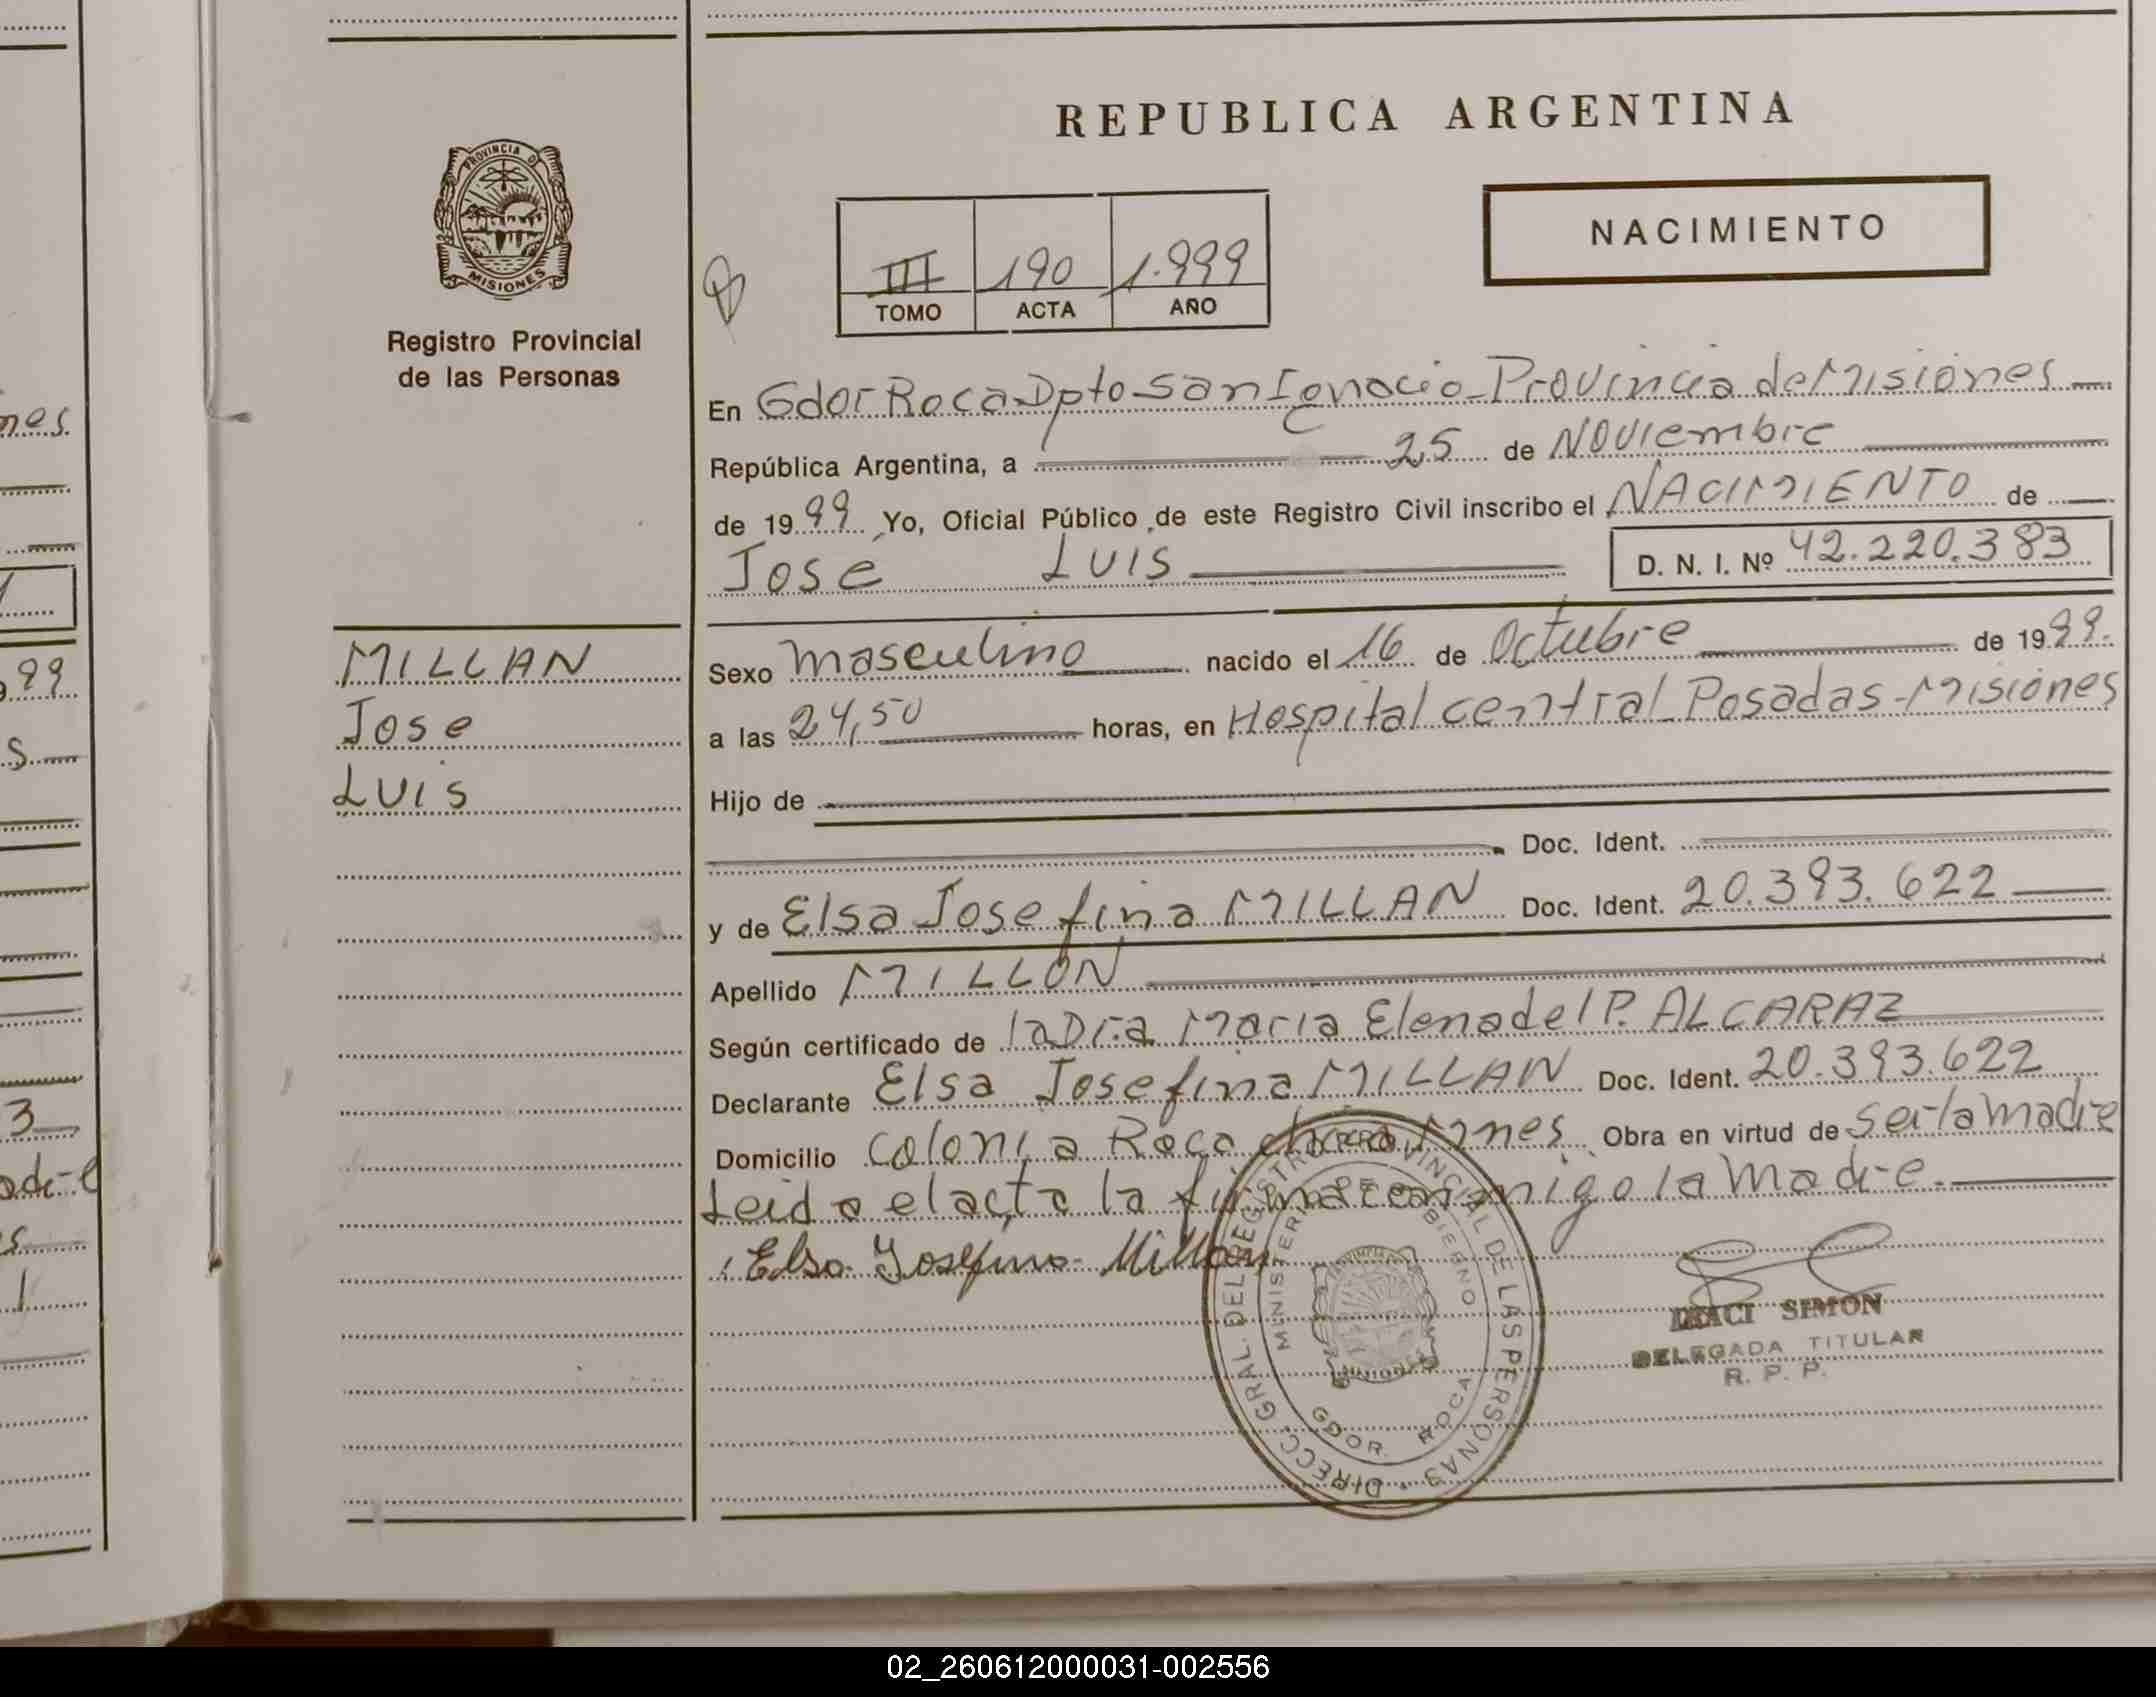 REPUBLICA ARGENTINA
PROVINCIA D
MISIONES
Registro Provincial
de las Personas
NACIMIENTO
III 190 1.999
TOMO ACTA AÑO
En Gdor Roca Dpto San Ignacio - Provincia de Misiones
República Argentina, a 25 de Noviembre
de 1999 Yo, Oficial Público de este Registro Civil inscribo el NACIMIENTO de
José LUIS D. N. I. Nº 42.220.383
MILLAN
Jose
LUIS
Sexo masculino nacido el 16 de Octubre de 1999.
a las 24,50 horas, en Hospital central Posadas - Misiones
Hijo de
Doc. Ident.
y de Elsa Josefina MILLAN Doc. Ident. 20.393.622
Apellido MILLON
Según certificado de la Dra Maria Elena del P. ALCARAZ
Declarante Elsa Josefina MILLAN Doc. Ident. 20.393.622
Domicilio colonia Roca Mnes Obra en virtud de ser la madre
Leida el acta la firma conmigo la Madre.
Elsa Josefina Millan
DIRECC. GRAL. DEL REGISTRO PROVINCIAL DE LAS PERSONAS
MINISTERIO DE GOBIERNO
GDOR. ROCA
IRACI SIMON
DELEGADA TITULAR
R. P. P.
02_260612000031-002556